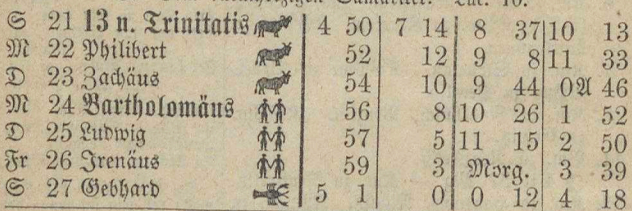 S 21 13 n. Trinitatis 4 50 7 14 8 37 10 13
M 22 Philibert 52 12 9 8 11 33
D 23 Zachäus 54 10 9 44 0A 46
M 24 Bartholomäus 56 8 10 26 1 52
D 25 Ludwig 57 5 11 15 2 50
Fr 26 Irenäus 59 3 Morg. 3 39
S 27 Gebhard 5 1 0 0 12 4 18